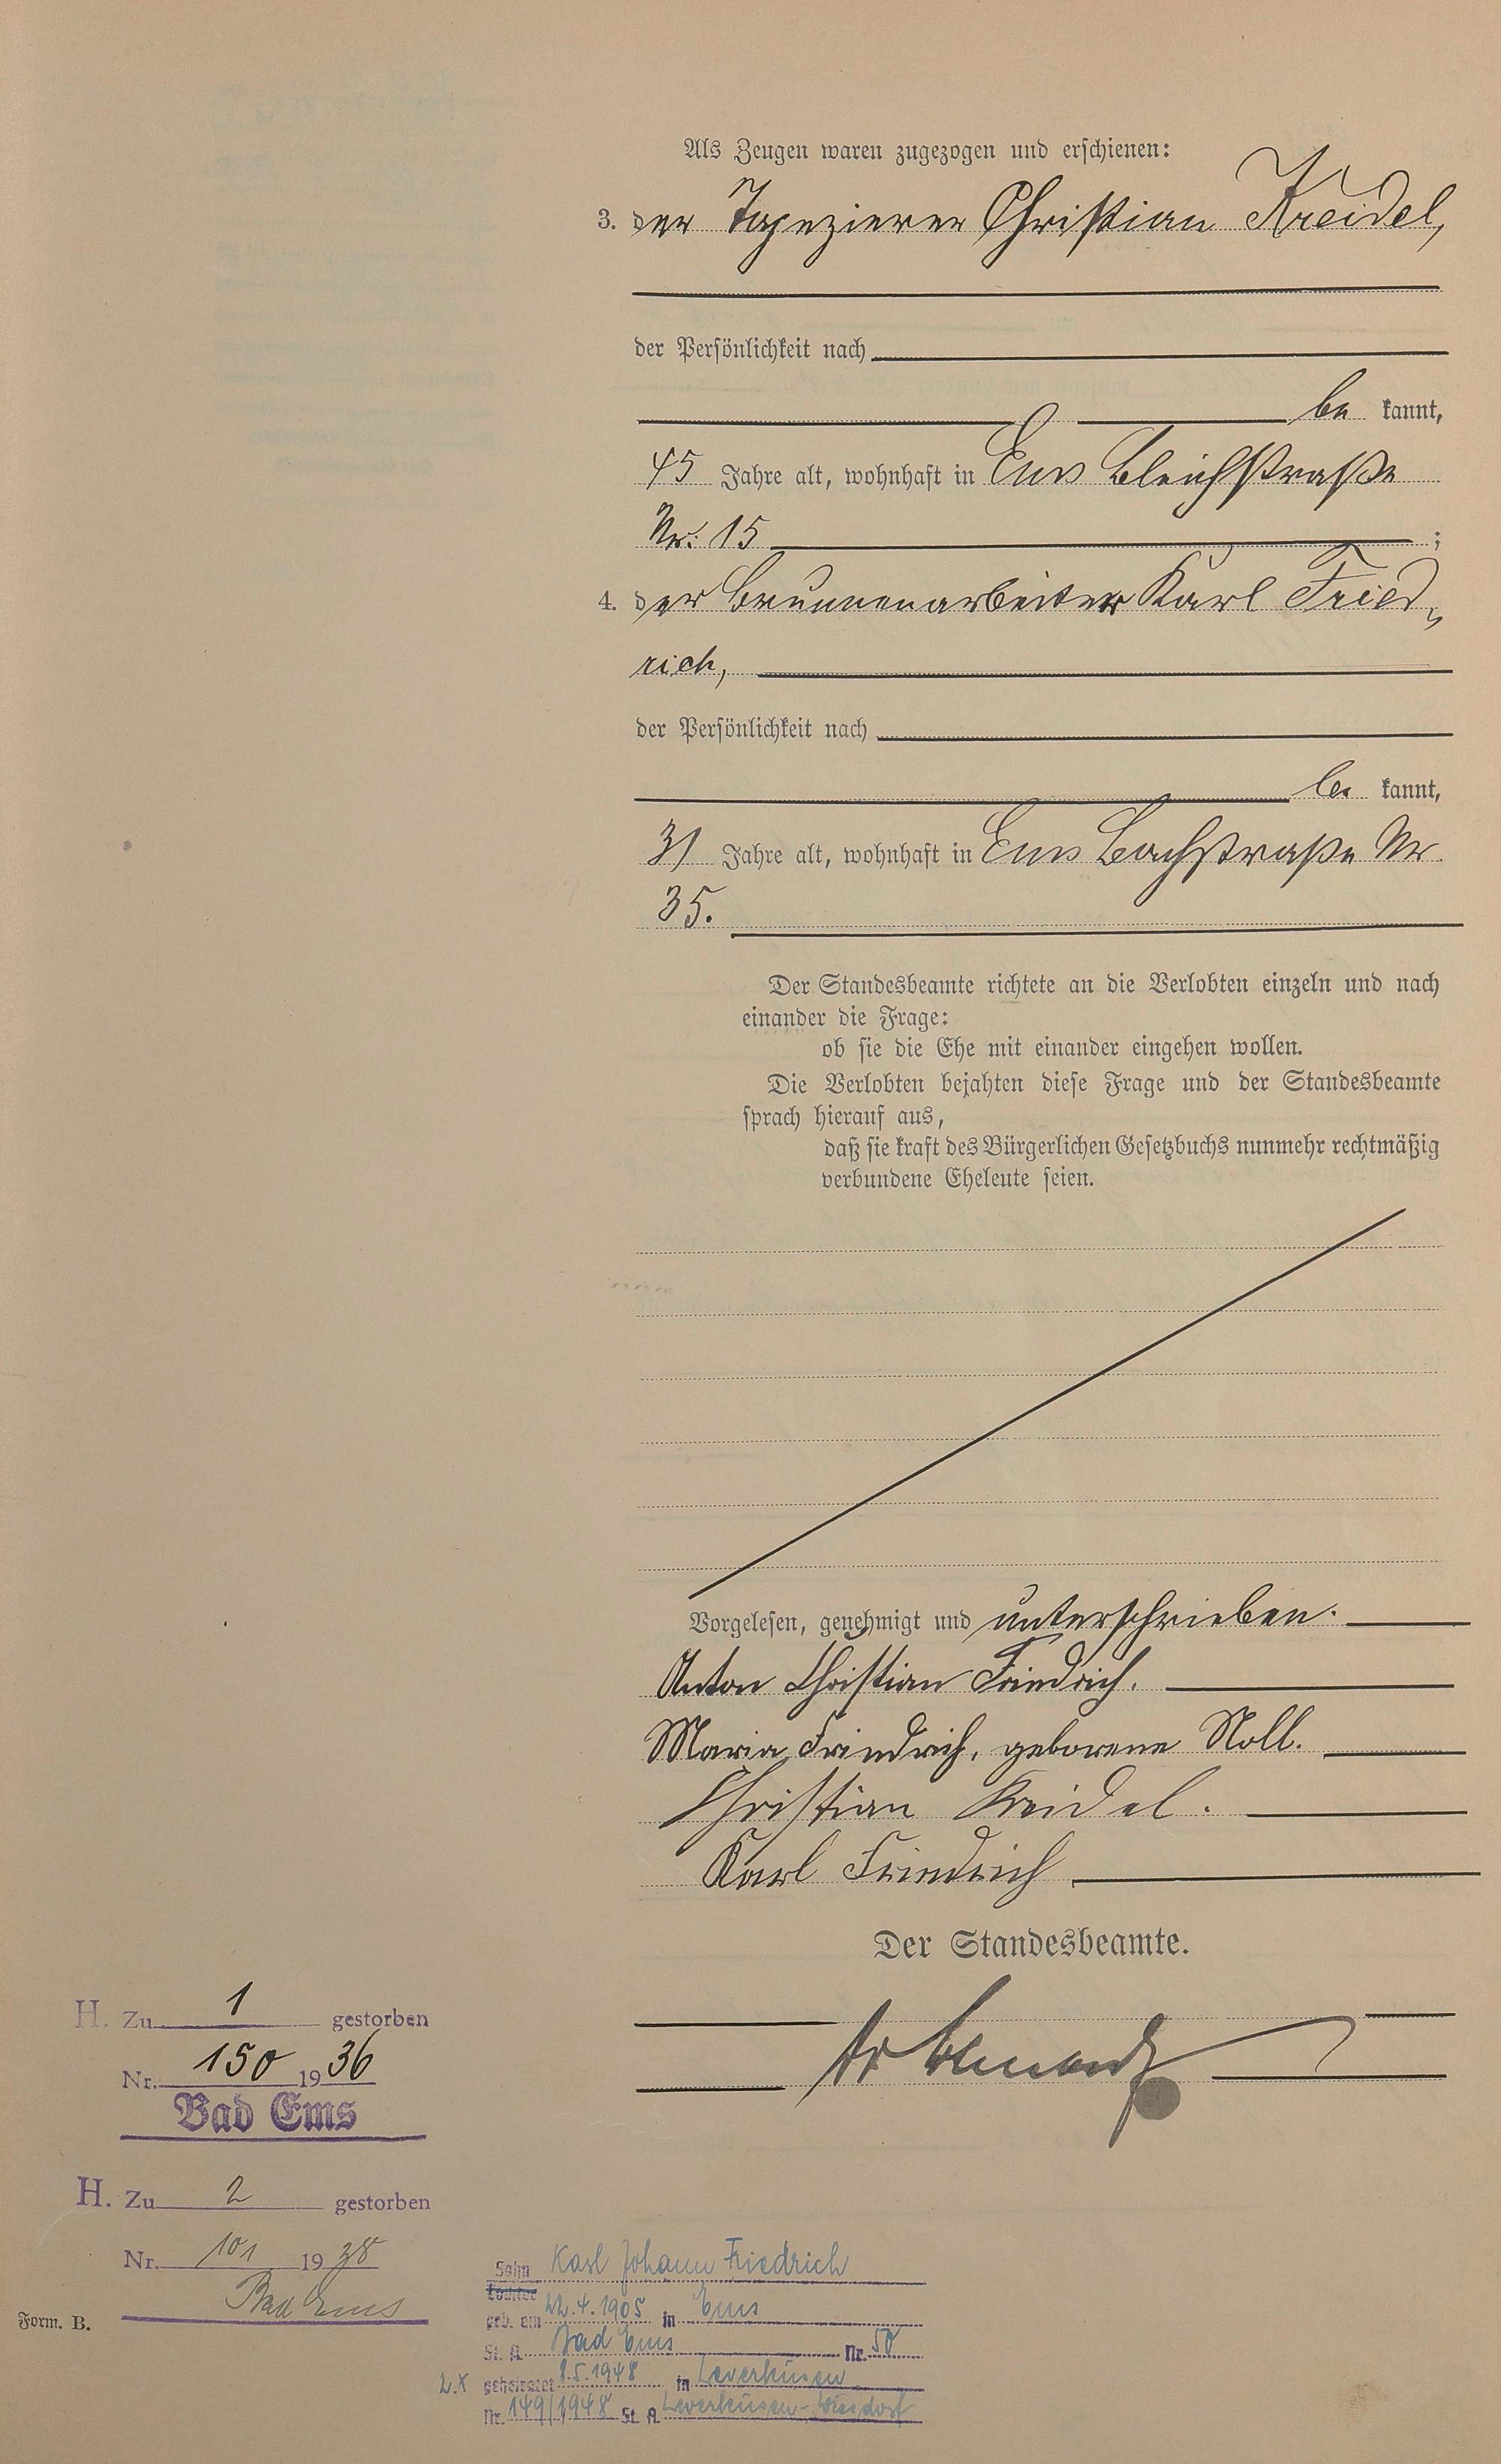 Als Zeugen waren zugezogen und erschienen:
3. der Tapezierer Christian Kreidel,
der Persönlichkeit nach
be kannt,
45 Jahre alt, wohnhaft in Ems Bleichstraße
Nr: 15 ;
4. der Brunnenarbeiter Karl Fried-
rich,
der Persönlichkeit nach
be kannt,
31 Jahre alt, wohnhaft in Ems Bachstraße Nr.
35.
Der Standesbeamte richtete an die Verlobten einzeln und nach
einander die Frage:
ob sie die Ehe mit einander eingehen wollen.
Die Verlobten bejahten diese Frage und der Standesbeamte
sprach hierauf aus,
daß sie kraft des Bürgerlichen Gesetzbuchs nunmehr rechtmäßig
verbundene Eheleute seien.
Vorgelesen, genehmigt und unterschrieben.
Anton Christian Friedrich.
Maria Friedrich, geborene Noll.
Christian Kreidel.
Karl Friedrich
Der Standesbeamte.
H. Zu 1 gestorben
Nr. 150 1936
Bad Ems
H. Zu 2 gestorben
Nr. 101 1938
Bad Ems
Form. B.
Sohn Karl Johann Friedrich
Tochter
geb. am 22.4.1905 in Ems
St. A. Bad Ems Nr. 50
2.X geheiratet 8.5.1948 in Leverkusen
Nr. 149/1948 St. A. Leverkusen-Wiesdorf